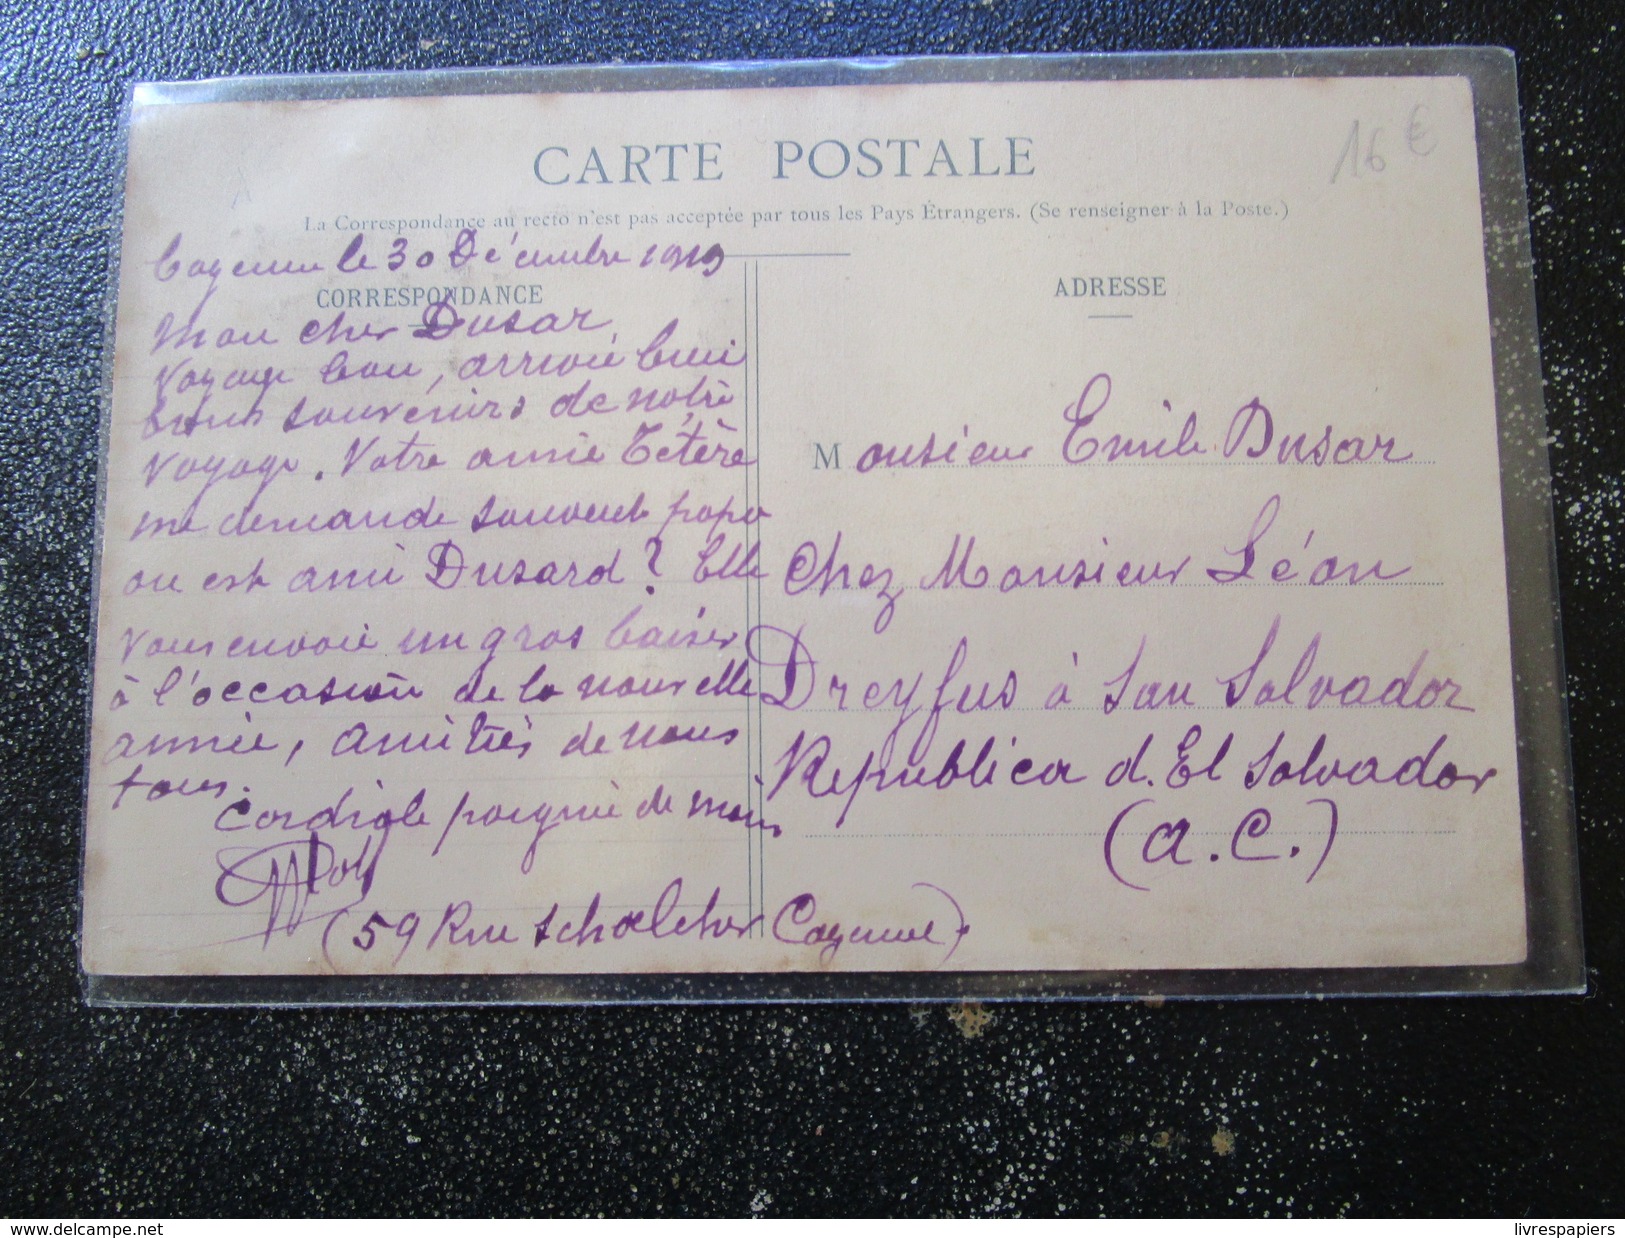 CARTE POSTALE
16 €
La Correspondance au recto n'est pas acceptée par tous les Pays Étrangers. (Se renseigner à la Poste.)
Cayenne le 30 Décembre 1919
CORRESPONDANCE
ADRESSE
Mon cher Dusar
Voyage bon, arrivée
souvenirs de notre
voyage. Votre amie Tétère
me demande souvent papa
ou est ami Dusard? Elle
vous envoie un gros baiser
à l'occasion de la nouvelle
année, amitiés de nous
tous.
Cordiale poignée de main
(59 Rue Schoelcher Cayenne).
Monsieur Emile Dusar
Chez Monsieur Léon
Dreyfus à San Salvador
Republica d. El Salvador
(A.C.)
www.delcampe.net
livrespapiers